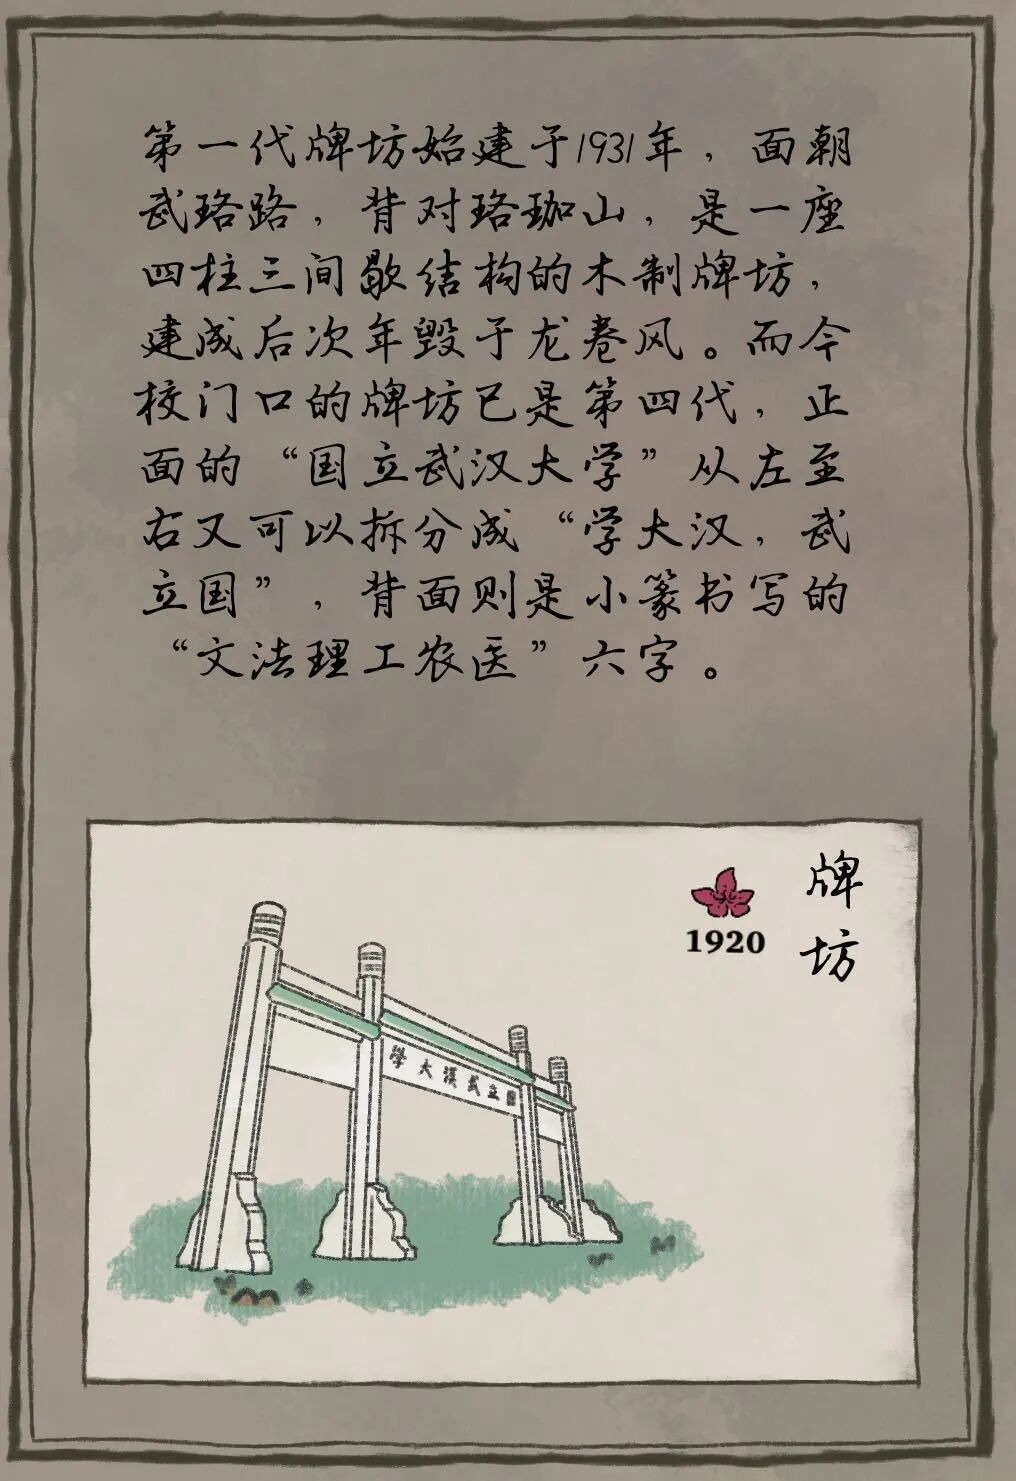 第一代牌坊始建于1931年，面朝
武珞路，背对珞珈山，是一座
四柱三间歇结构的木制牌坊，
建成后次年毁于龙卷风。而今
校门口的牌坊已是第四代，正
面的“国立武汉大学”从左至
右又可以拆分成“学大汉，武
立国”，背面则是小篆书写的
“文法理工农医”六字。
牌坊
1920
學大漢武立國